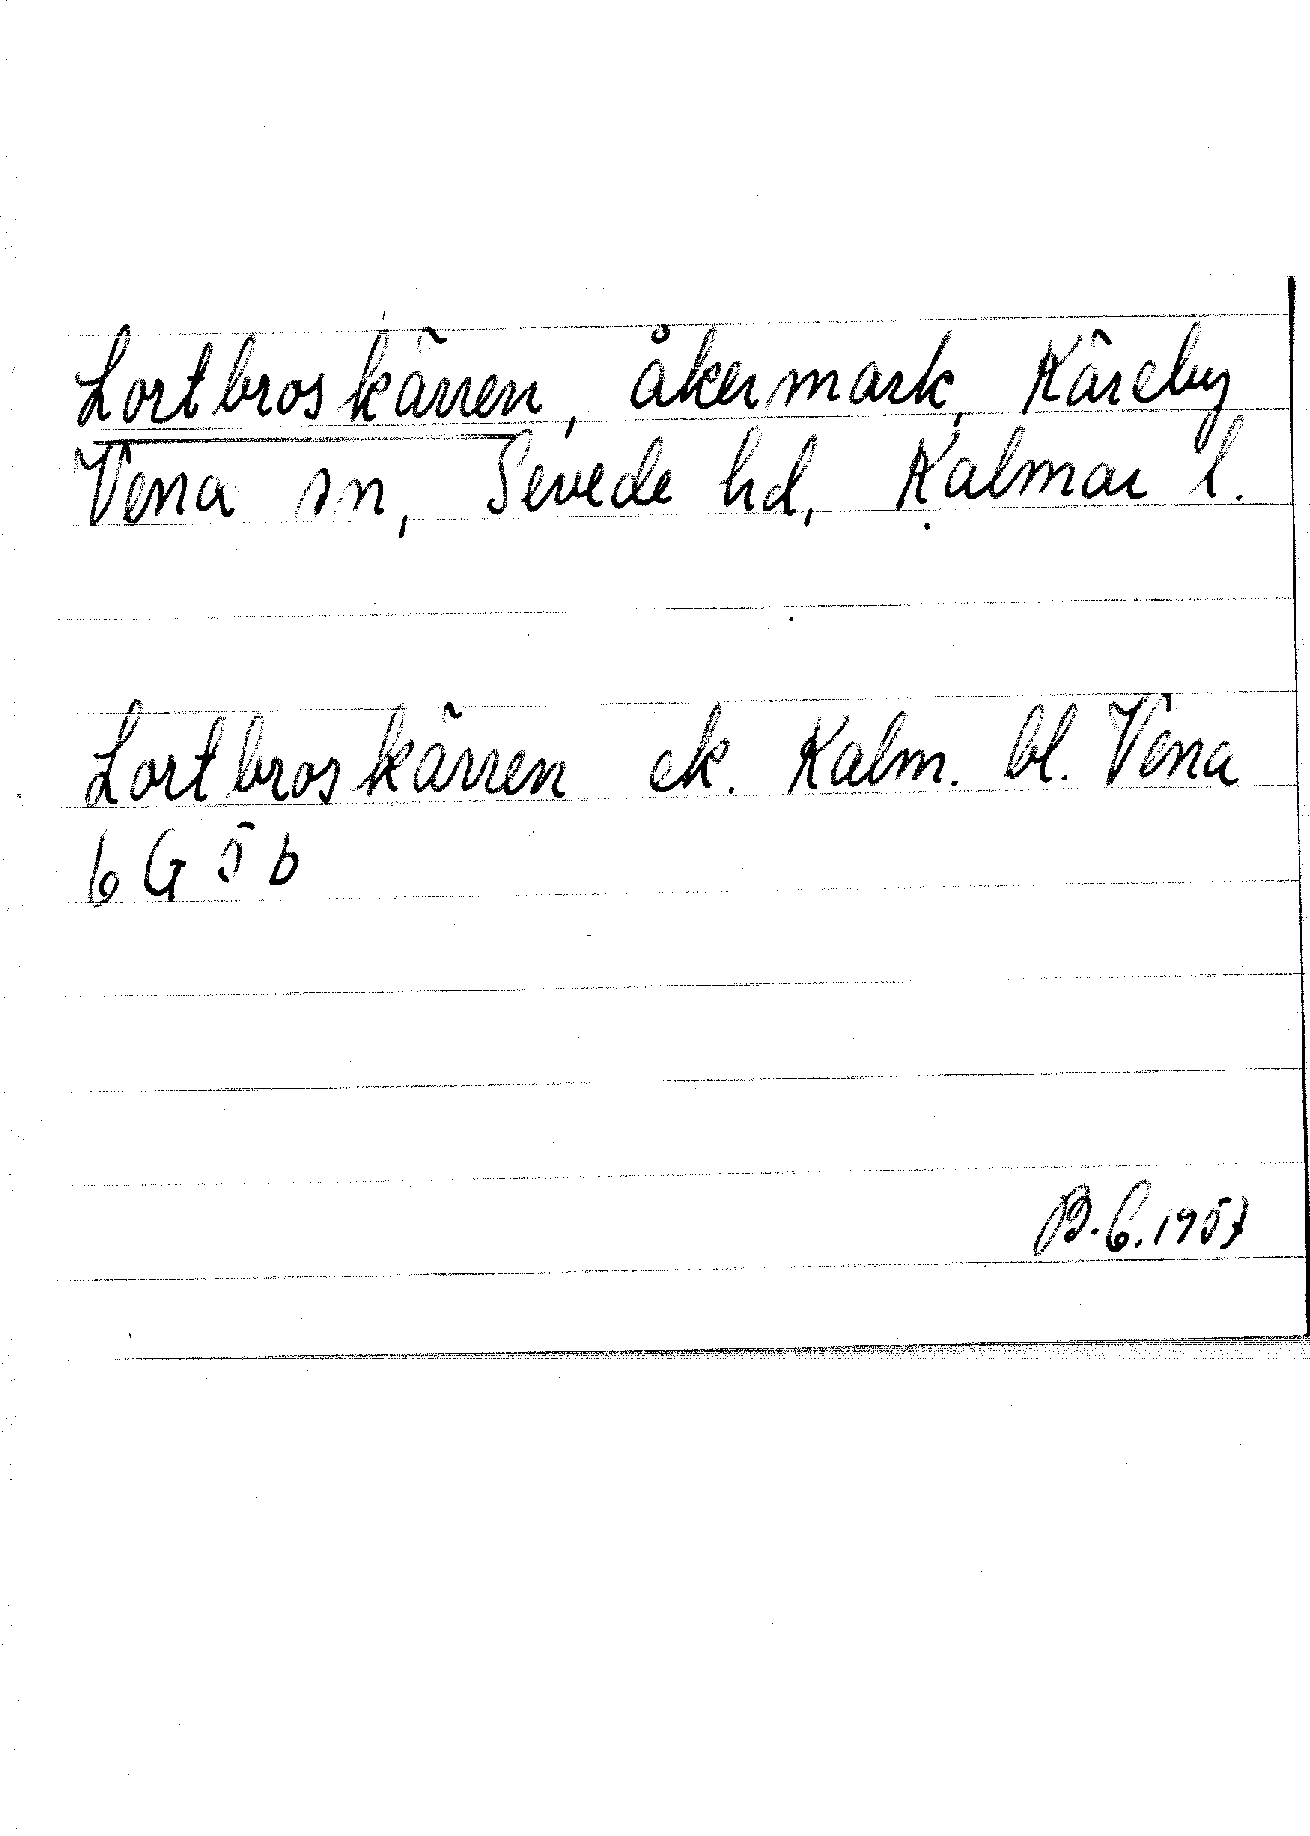 Lortbroskärren, åkermark, Käreby
Vena sn, Sevede hd, Kalmar l.
Lortbroskärren ek. Kalm. bl. Vena
6 G 5 b
B.G. 1957